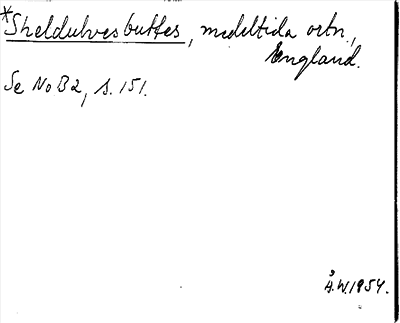 *Sheldulvesbuttes, medeltida ortn.,
England.
Se NoB2, s. 151.
Å.W.1954.